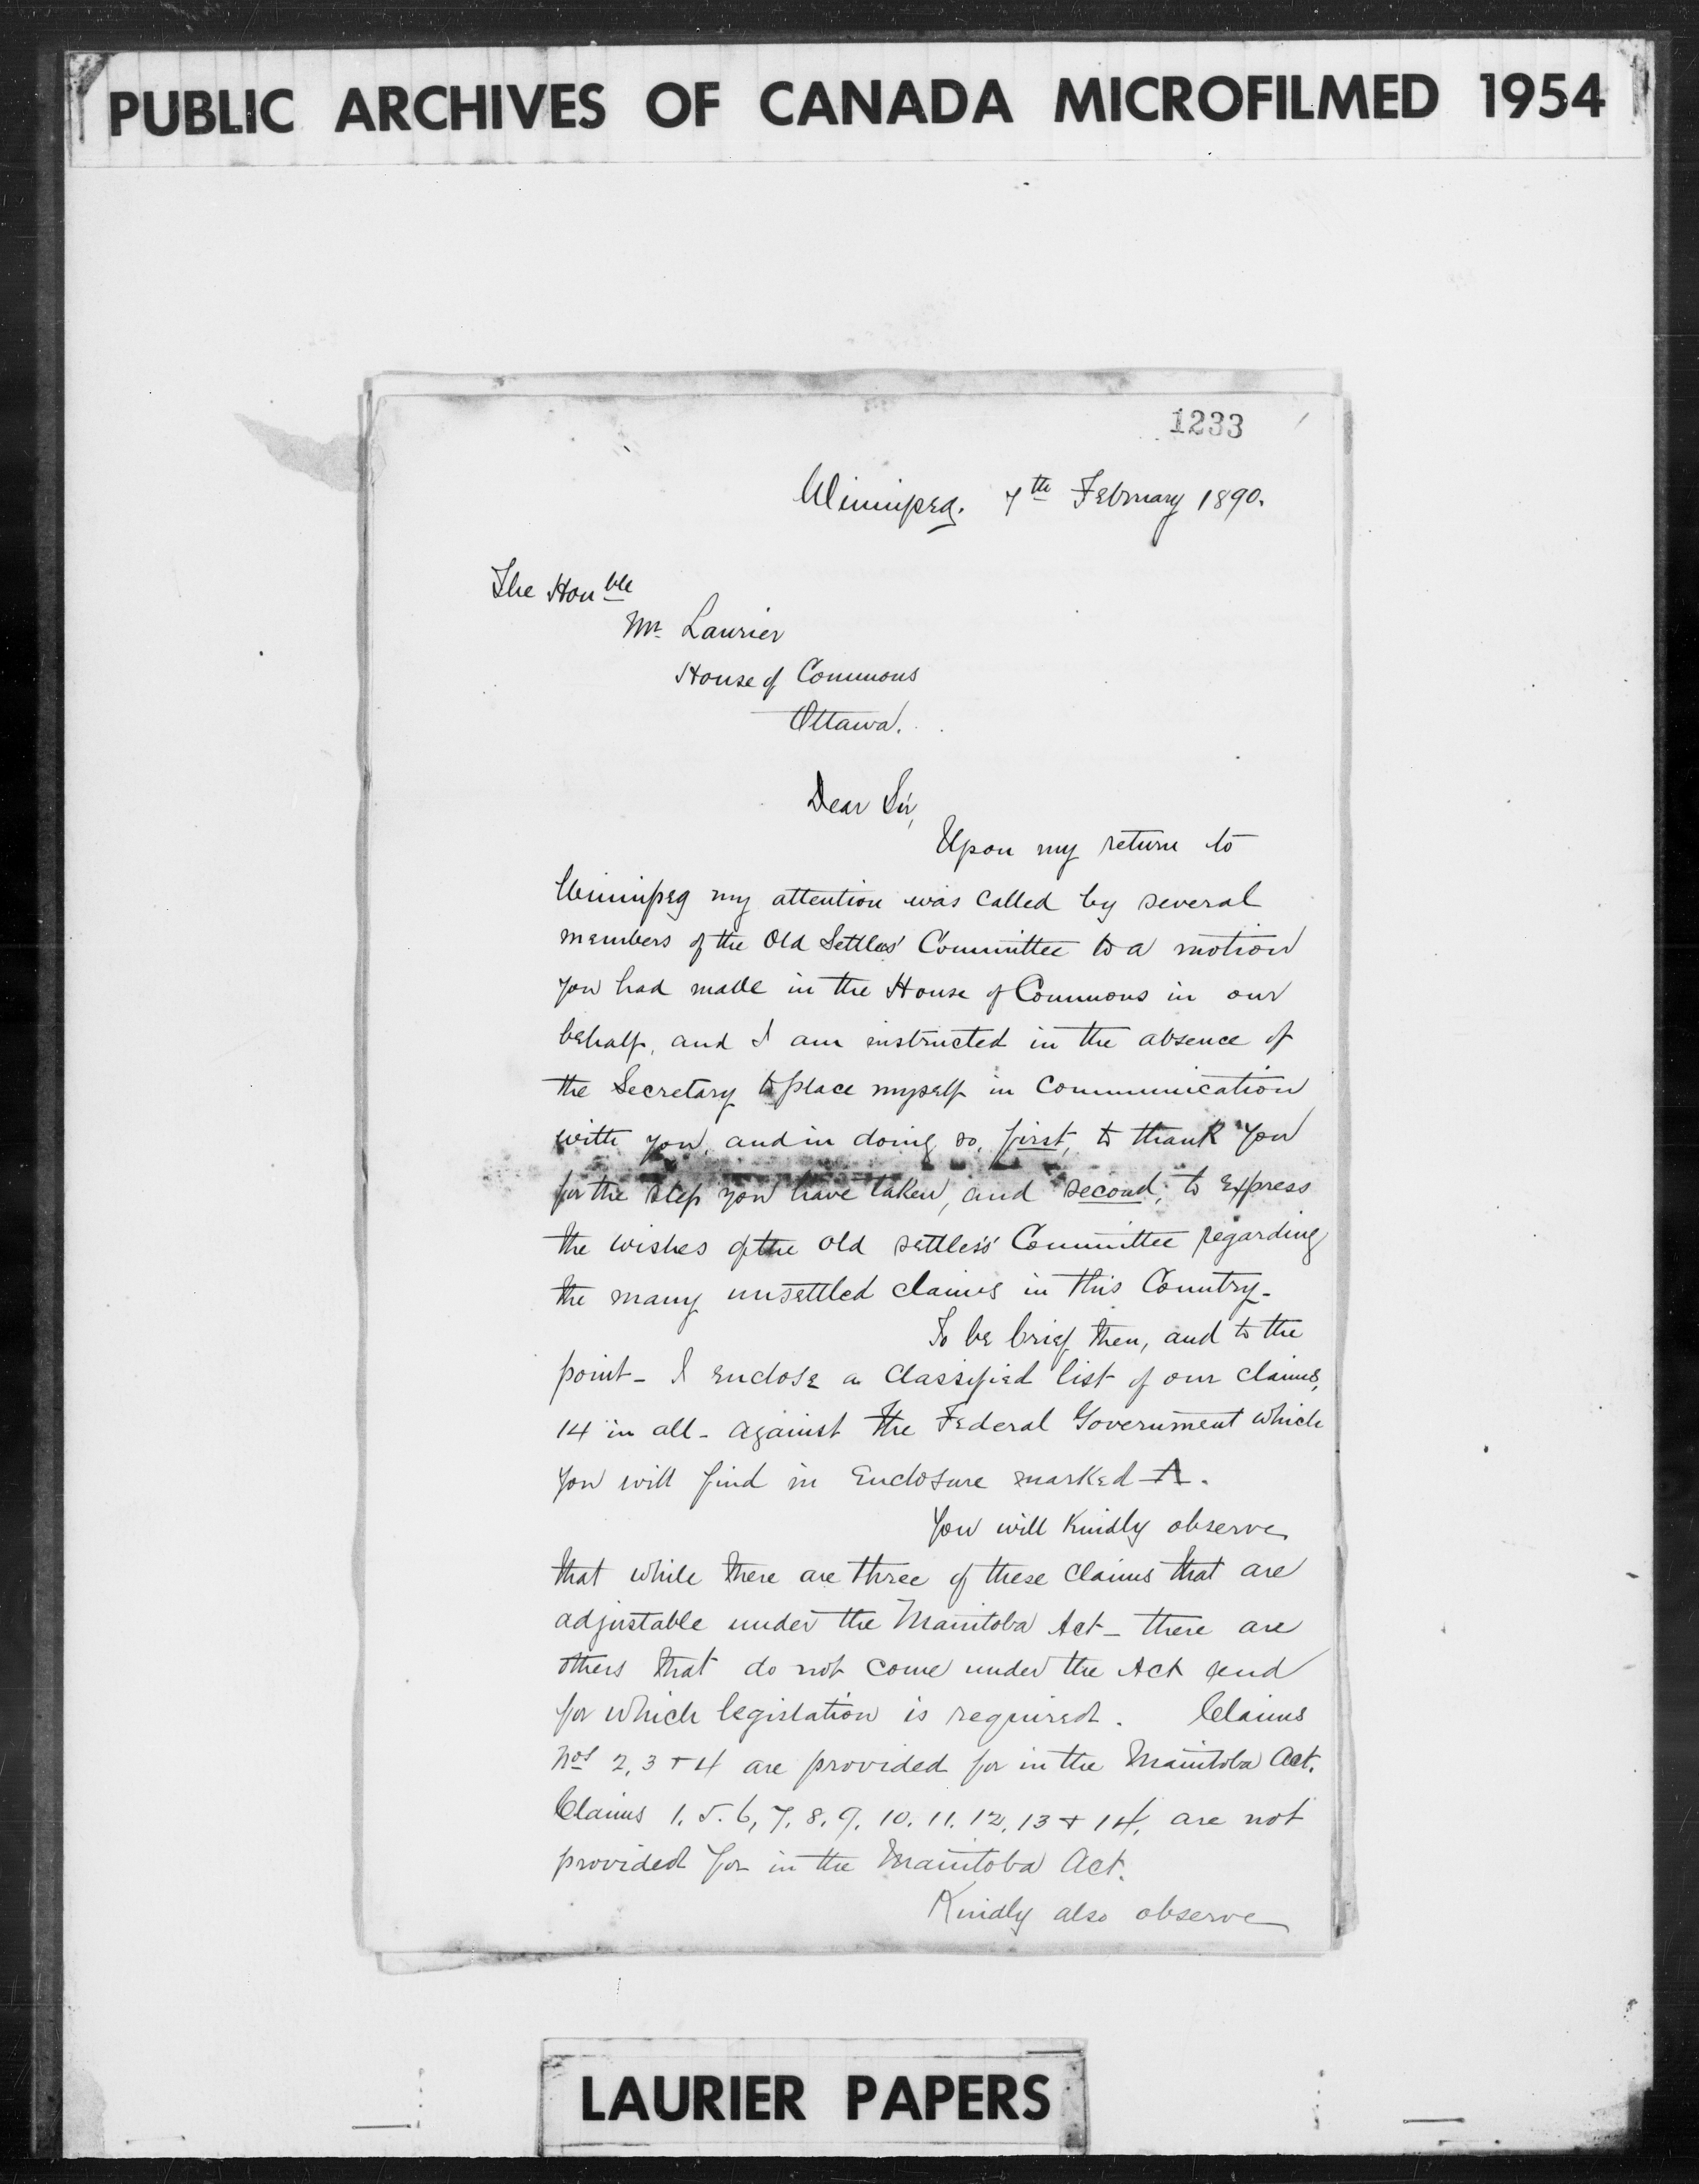 PUBLIC ARCHIVES OF CANADA MICROFILMED 1954
1233
Winnipeg. 7th February 1890.
The Honble
Mr. Laurier
House of Commons
Ottawa.
Dear Sir,
Upon my return to
Winnipeg my attention was called by several
members of the Old Settlers' Committee to a motion
you had made in the House of Commons in our
behalf, and I am instructed in the absence of
the Secretary to place myself in communication
with you, and in doing so, first, to thank you
for the step you have taken, and second, to express
the wishes of the old settlers' Committee regarding
the many unsettled claims in this Country-
To be brief then, and to the
point - I enclose a classified list of our claims,
14 in all - against the Federal Government which
you will find in Enclosure marked A.
You will kindly observe
that while there are three of these claims that are
adjustable under the Manitoba Act - there are
others that do not come under the Act and
for which legislation is required. Claims
Nos 2, 3 + 4 are provided for in the Manitoba Act.
Claims 1. 5. 6, 7, 8, 9, 10. 11. 12, 13 + 14, are not
provided for in the Manitoba Act.
Kindly also observe
LAURIER PAPERS